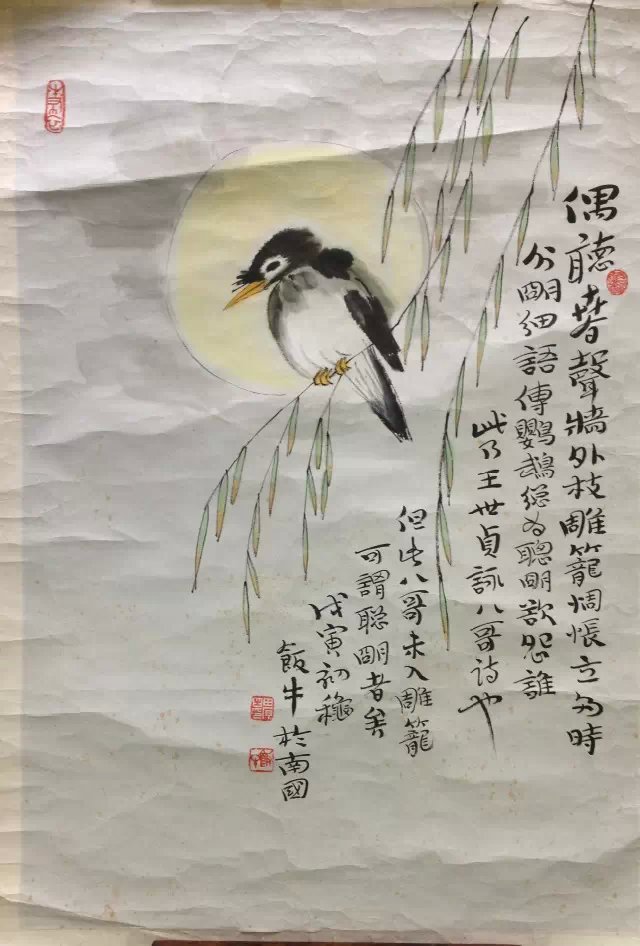 偶聽春聲牆外枝雕籠惆悵立多時
分明細語傳鸚鵡總為聰明欲怨誰
此乃王世貞詠八哥詩也
但此八哥未入雕籠
可謂聰明者矣
戊寅初穐
飯牛於南國